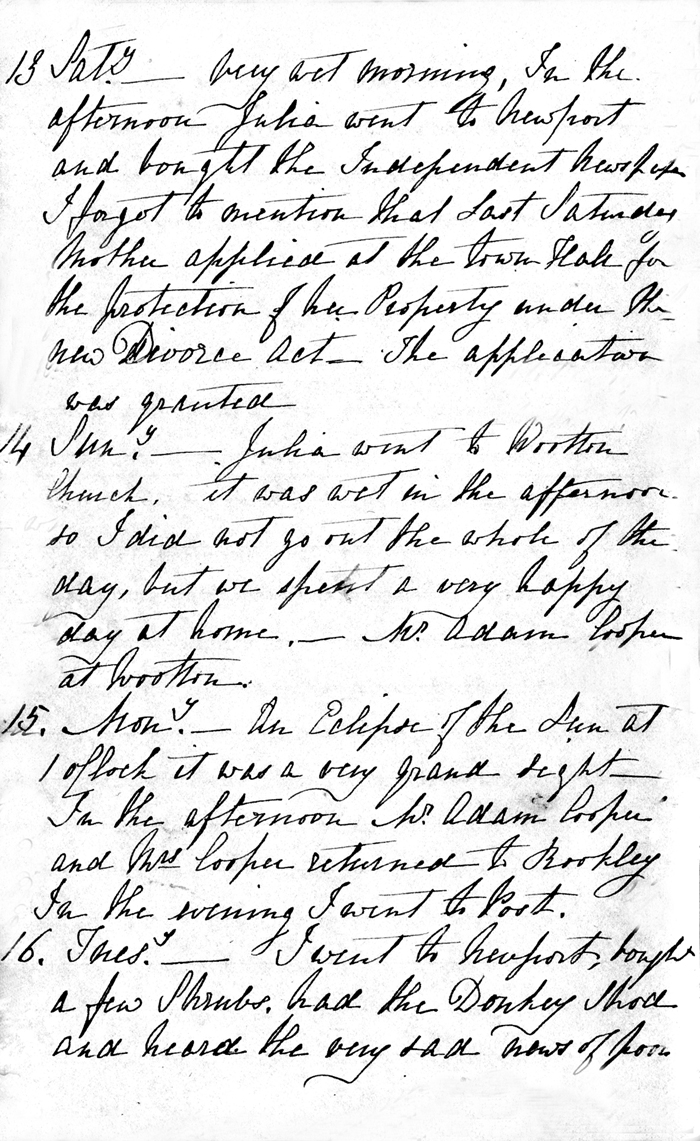 13 Saty. — Very wet morning, In the
afternoon Julia went to Newport
and bought the Independent Newspaper
I forgot to mention that Last Saturday
Mother applied at the Town Hall for
the protection of her Property under the
new Divorce Act — The application
was granted
14 Suny. — Julia went to Wootton
Church. it was wet in the afternoon
so I did not go out the whole of the
day, but we spent a very happy
day at home. — Mr. Adam Cooper
at Wootton.
15. Mony. — An Eclipse of the Sun at
1 oClock it was a very grand sight —
In the afternoon Mr. Adam Cooper
and Mrs Cooper returned to Rookley
In the evening I went to Post.
16. Tuesy. — I went to Newport, bought
a few Shrubs. had the Donkey Shod
and heard the very sad news of poor